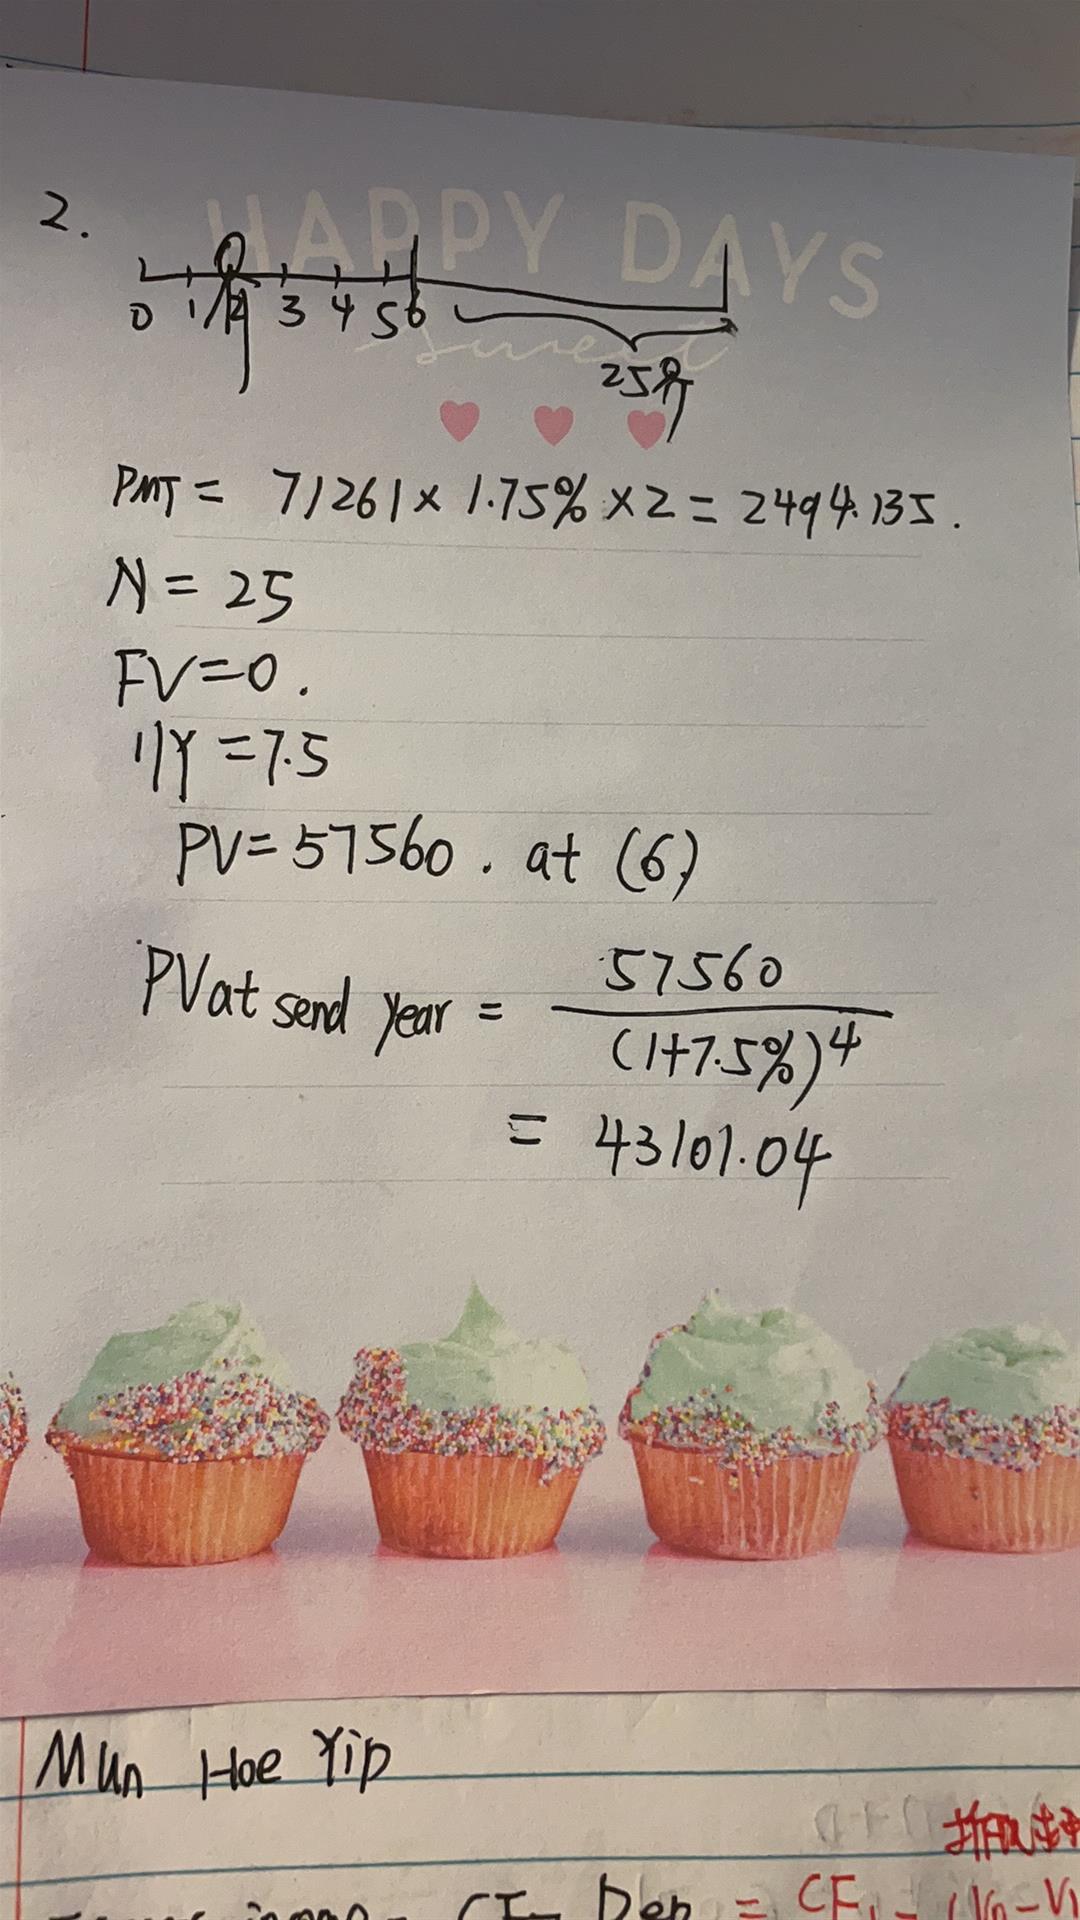 2.
HAPPY DAYS
0 1 2 3 4 5 6
sweet
25年
PMT = 71261 × 1.75% × 2 = 2494.135.
N = 25
FV=0.
I/Y =7.5
PV= 57560. at (6)
57560
PVat send year =
(1+7.5%)^4
= 43101.04
Mun Hoe Yip
CF Dep = CF₁ -